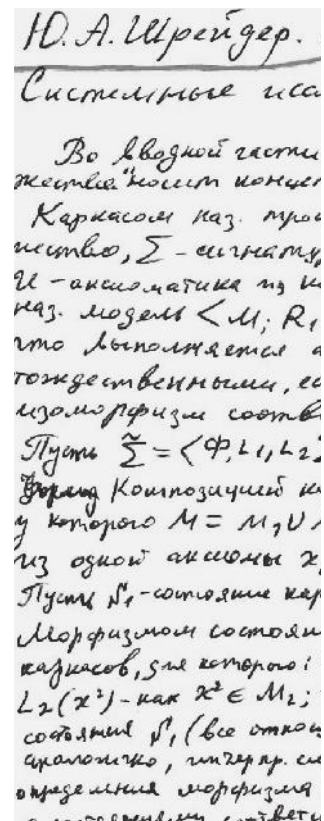 Ю. А. Шрейдер.
Системные исс
Во вводной части
жества" носит концеп
Каркасом наз. трой
жество, Σ - сигнатур
наз. модель < M; R₁
что выполняется а
тождественными, ес
изоморфизм соотве
Пусть Σ̃ = <Φ, L₁, L₂
Композицией к
у которого M = M₁ ∪
из одной аксиомы x
Пусть S₁ - состояние кар
Морфизмом состоян
каркасов, для которого:
L₂(x²) - как x² ∈ M₂;
состояния S₁ (все отнош
аналогично,
определения морфизма